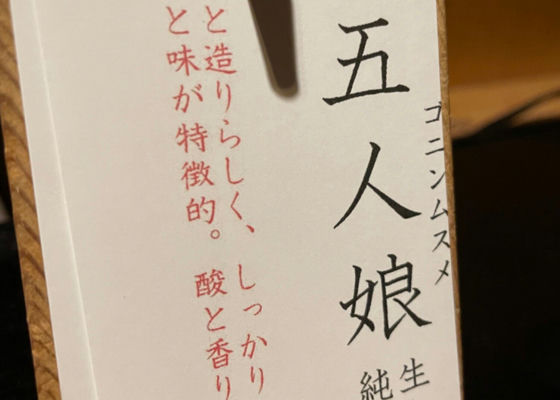 五人娘
ゴニンムスメ
生
純
と造りらしく、しっかり
と味が特徴的。酸と香り